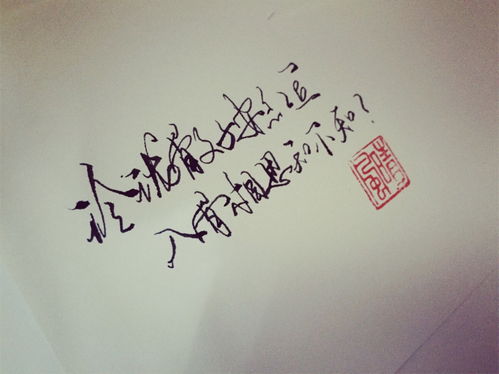 玲珑骰子安红豆
入骨相思知不知?